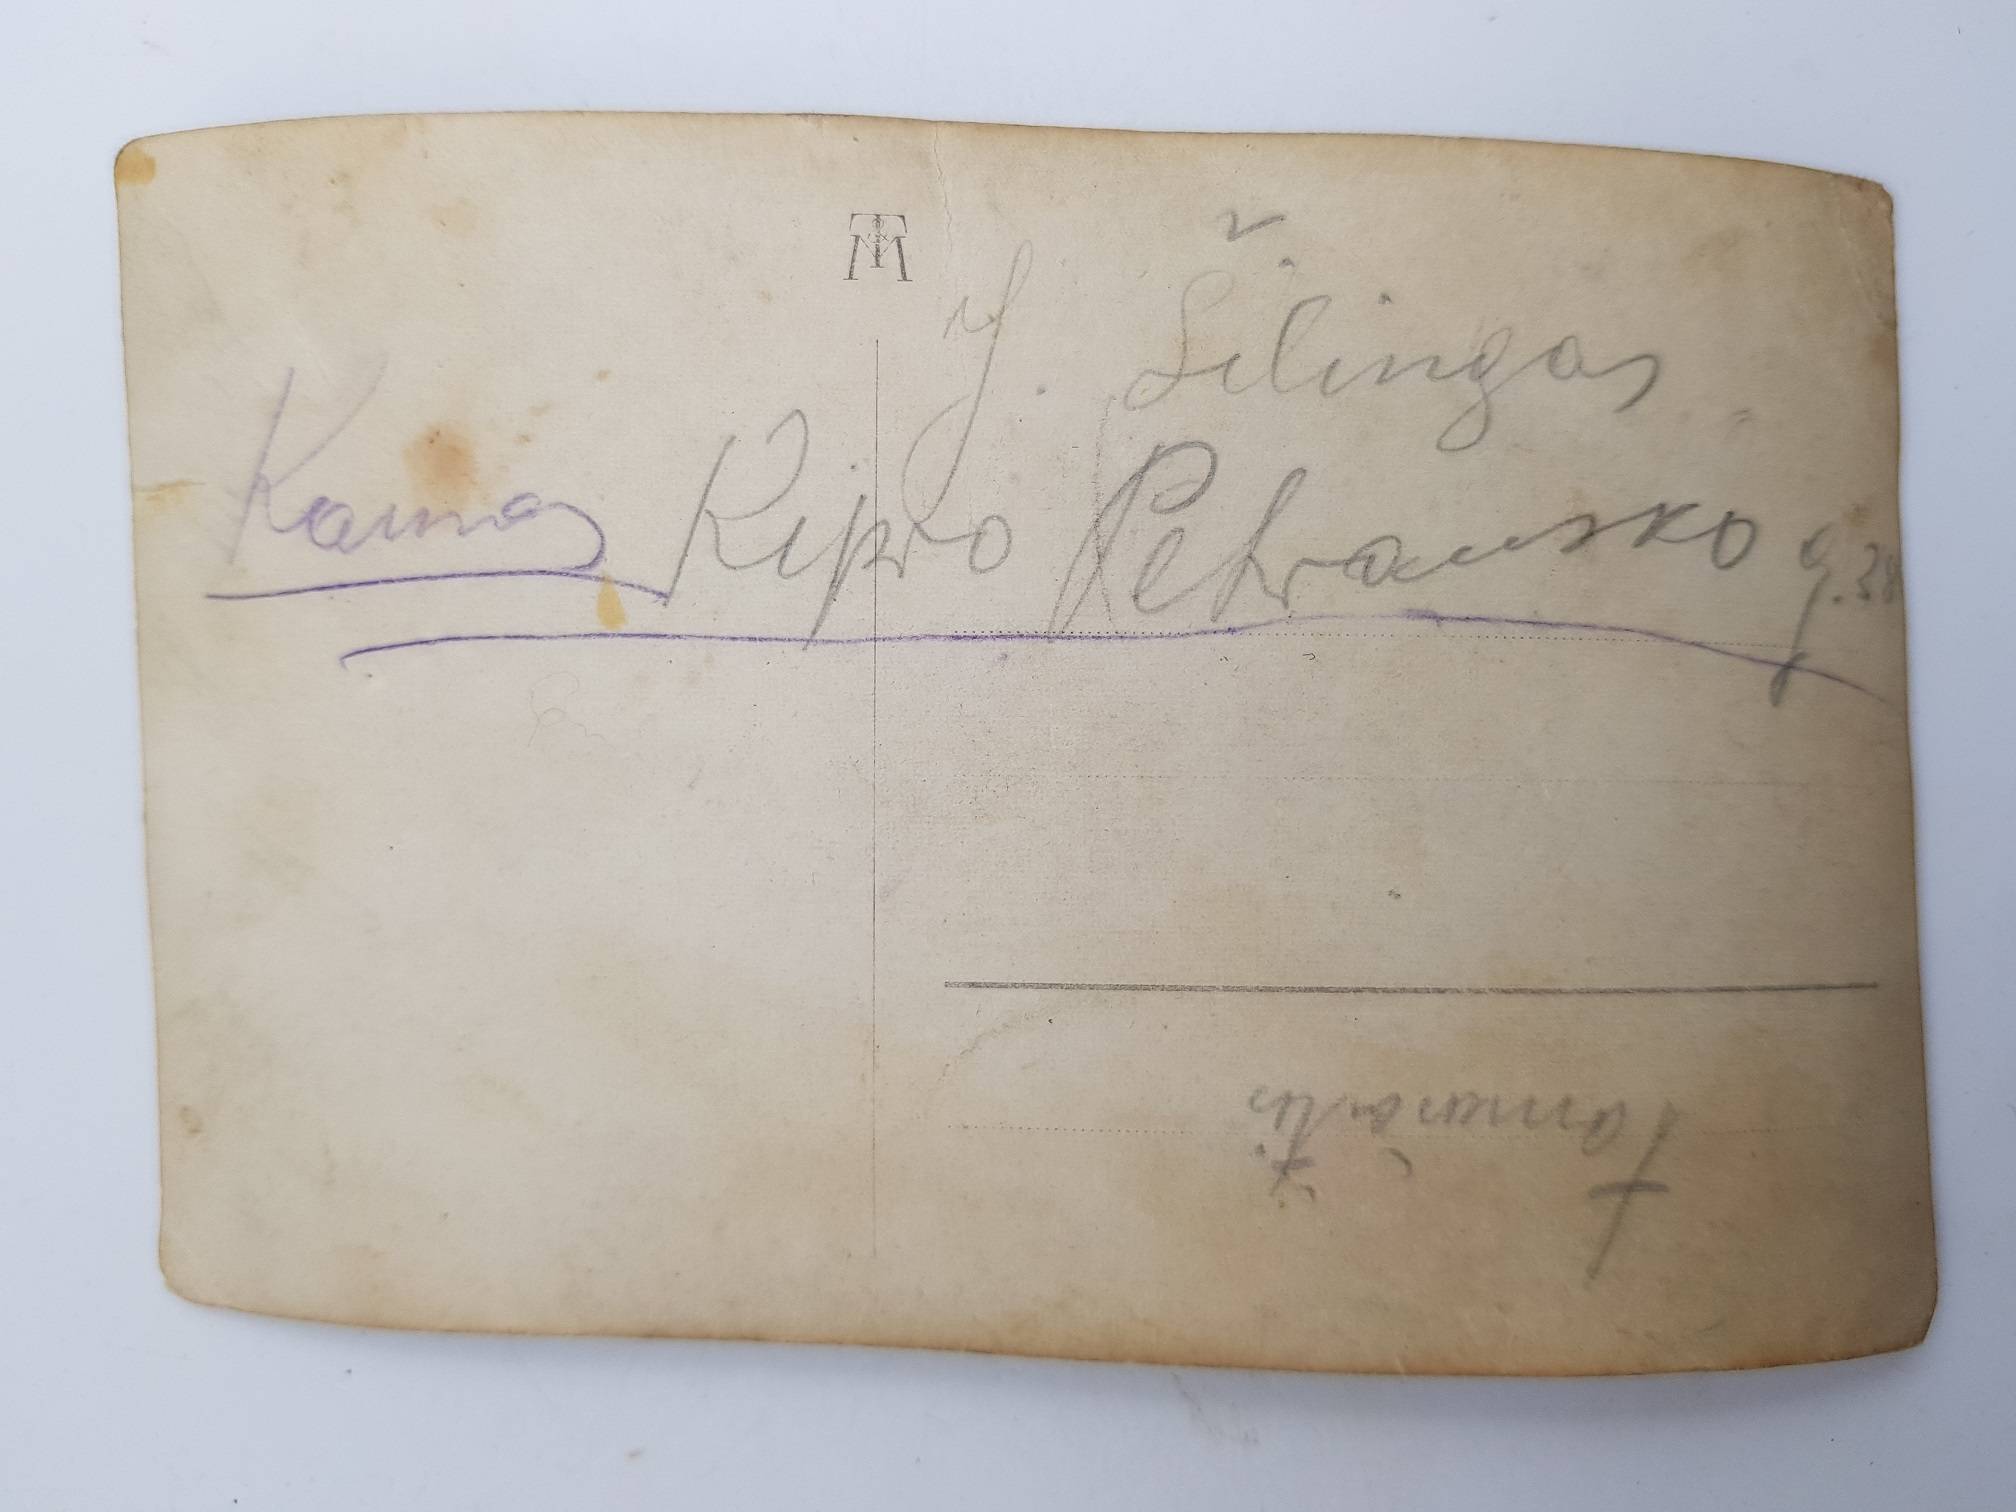 J. Šilingas
Kaunas Kipro Petrausko g. 38